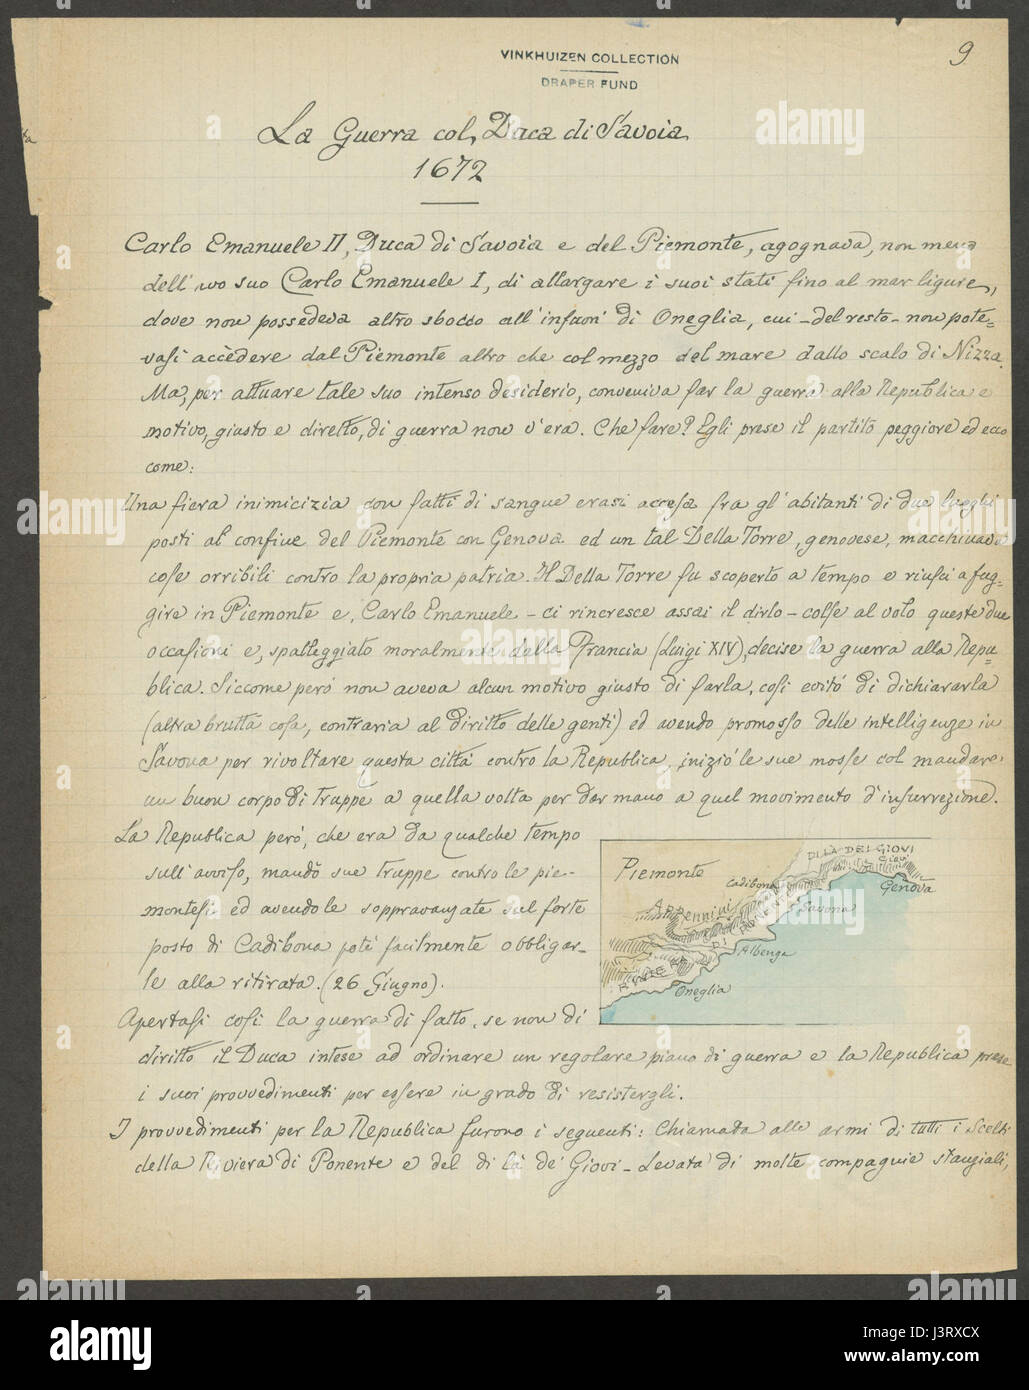 VINKHUIZEN COLLECTION
DRAPER FUND
9
La Guerra col Duca di Savoia
1672
Carlo Emanuele II, Duca di Savoia e del Piemonte, agognava, non meno
dell'avo suo Carlo Emanuele I, di allargare i suoi stati fino al mar ligure,
dove non possedeva altro sbocco all'infuori di Oneglia, cui - del resto - non pote-
vasi accedere dal Piemonte altro che col mezzo del mare dallo scalo di Nizza.
Ma, per attuare tale suo intenso desiderio, conveniva far la guerra alla Republica e
motivo, giusto e diretto, di guerra non v'era. Che fare? Egli prese il partito peggiore ed ecco
come:
Una fiera inimicizia con fatti di sangue erasi accesa fra gl'abitanti di due luoghi
posti al confine del Piemonte con Genova ed un tal Della Torre, genovese, macchinava
cose orribili contro la propria patria. Il Della Torre fu scoperto a tempo e riuscì a fug-
gire in Piemonte e, Carlo Emanuele - ci rincresce assai il dirlo - colse al volo queste due
occasioni e, spalleggiato moralmente dalla Francia (Luigi XIV), decise la guerra alla Repu-
blica. Siccome però non aveva alcun motivo giusto di farla, così evitò di dichiararla
(altra brutta cosa, contraria al diritto delle genti) ed avendo promosso delle intelligenze in
Savona per rivoltare questa città contro la Republica, iniziò le sue mosse col mandare
un buon corpo di truppe a quella volta per dar mano a quel movimento d'insurrezione.
La Republica però, che era da qualche tempo
sull'avviso, mandò sue truppe contro le pie-
montesi ed avendole sopravanzate sul forte
posto di Cadibona potè facilmente obbligar-
le alla ritirata. (26 Giugno).
Apertasi così la guerra di fatto, se non di
diritto il Duca intese ad ordinare un regolare piano di guerra e la Republica prese
i suoi provvedimenti per essere in grado di resistergli.
I provvedimenti per la Republica furono i seguenti: Chiamata alle armi di tutti i Scelti
della Riviera di Ponente e del di là de' Giovi - Levata di molte compagnie stanziali,
Piemonte
DI LÀ DEI GIOVI
Giovi
Genova
Cadibona
Savona
Appennini
RIVIERA DI PONENTE
Albenga
Oneglia
alamy
a
alamy
Image ID: J3RXCX
www.alamy.com